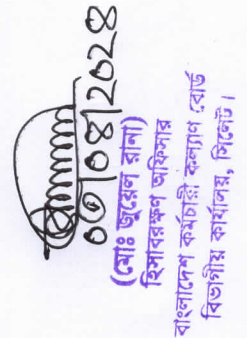 (মোঃ জুয়েল রানা)
হিসাবরক্ষণ অফিসার
বাংলাদেশ কর্মচারী কল্যাণ বোর্ড
বিভাগীয় কার্যালয়, সিলেট।